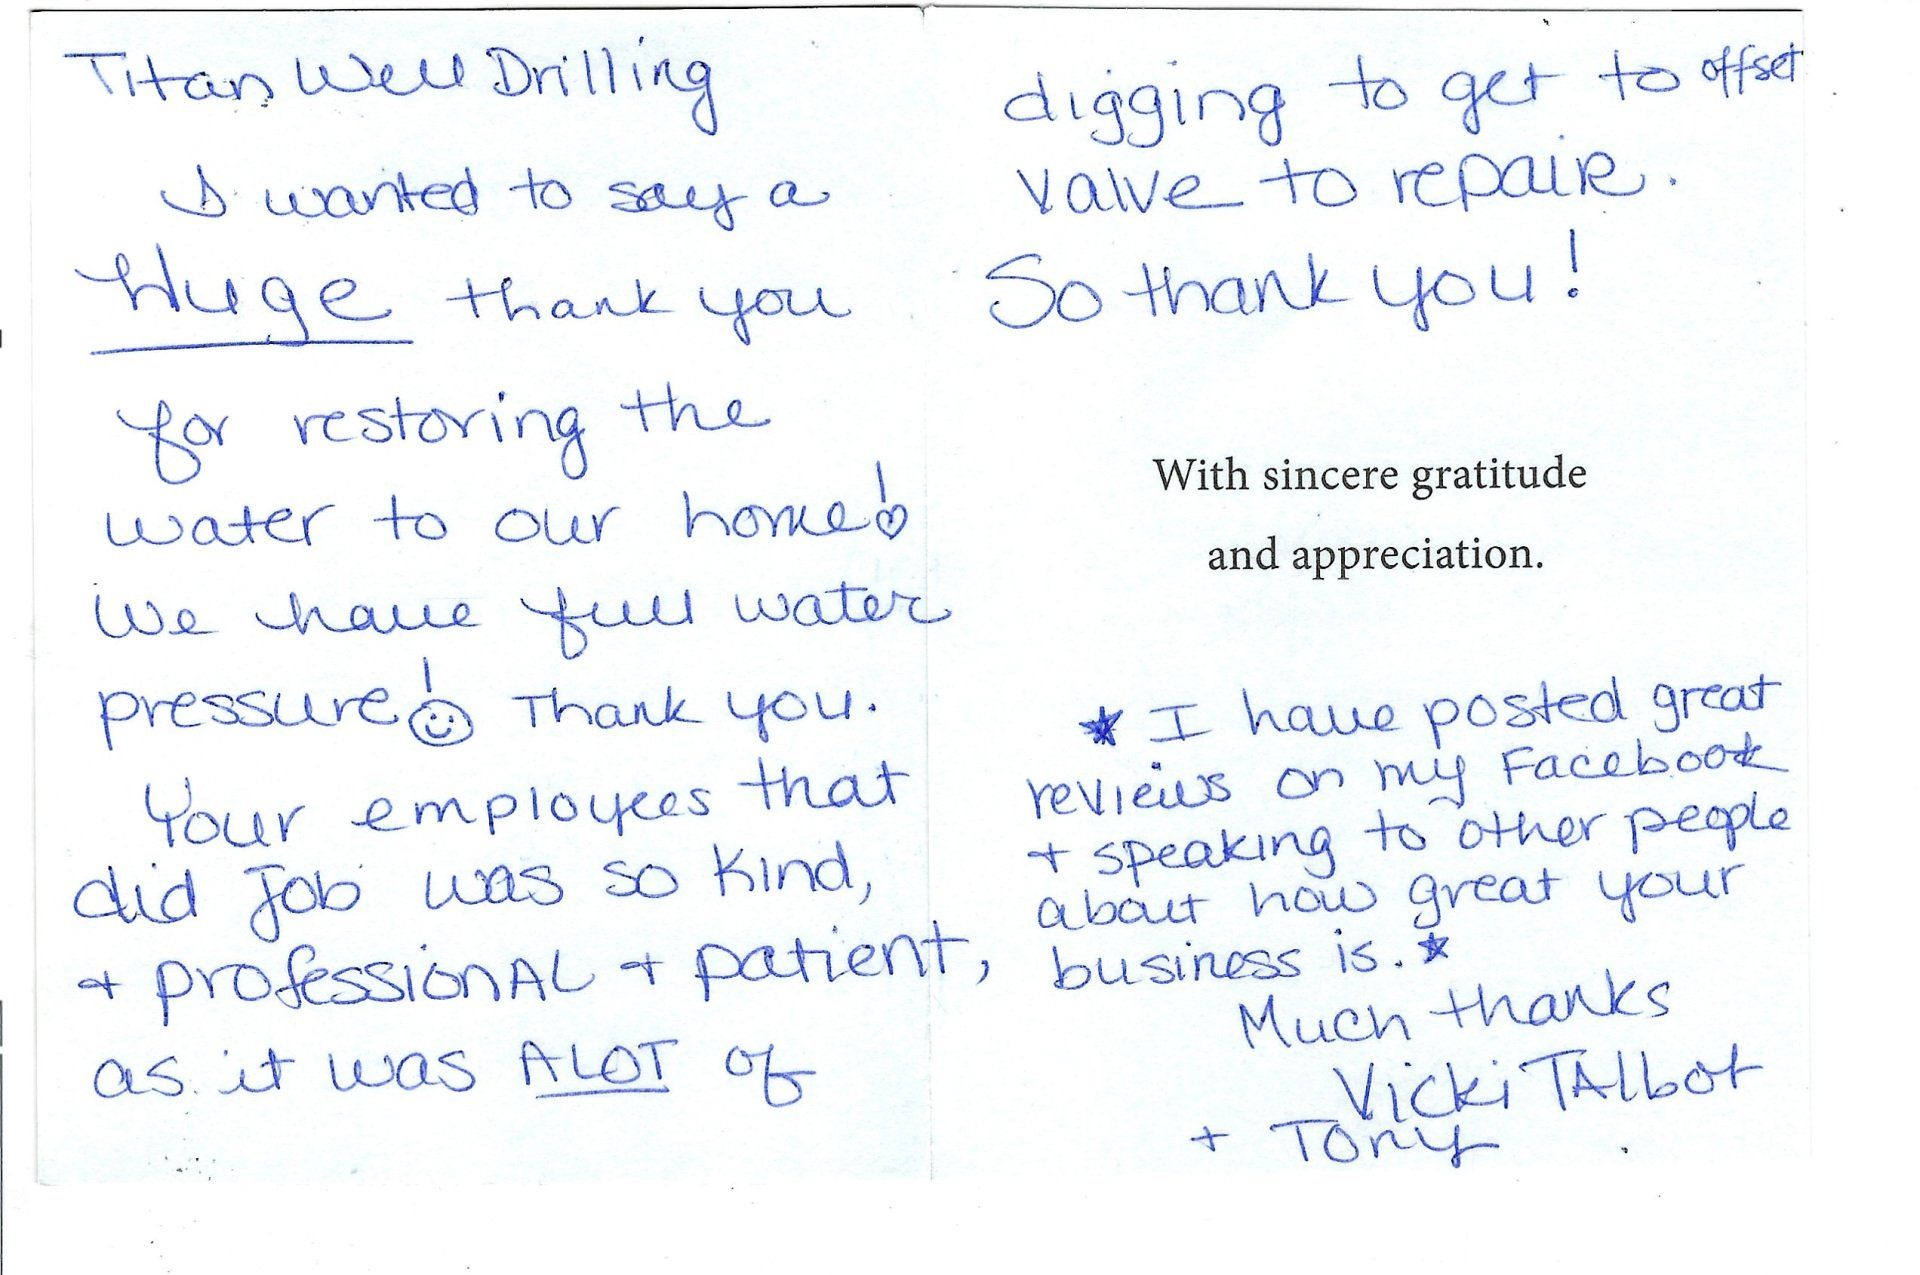 Titan Well Drilling
I wanted to say a
Huge thank you
for restoring the
water to our home!
We have full water
pressure! Thank you.
Your employees that
did job was so kind,
+ professionAL + patient,
as it was ALOT of
digging to get to offset
valve to repair.
So thank you!
With sincere gratitude
and appreciation.
★ I have posted great
reviews on my Facebook
+ speaking to other people
about how great your
business is. ★
Much thanks
Vicki TAlbot
+ Tony